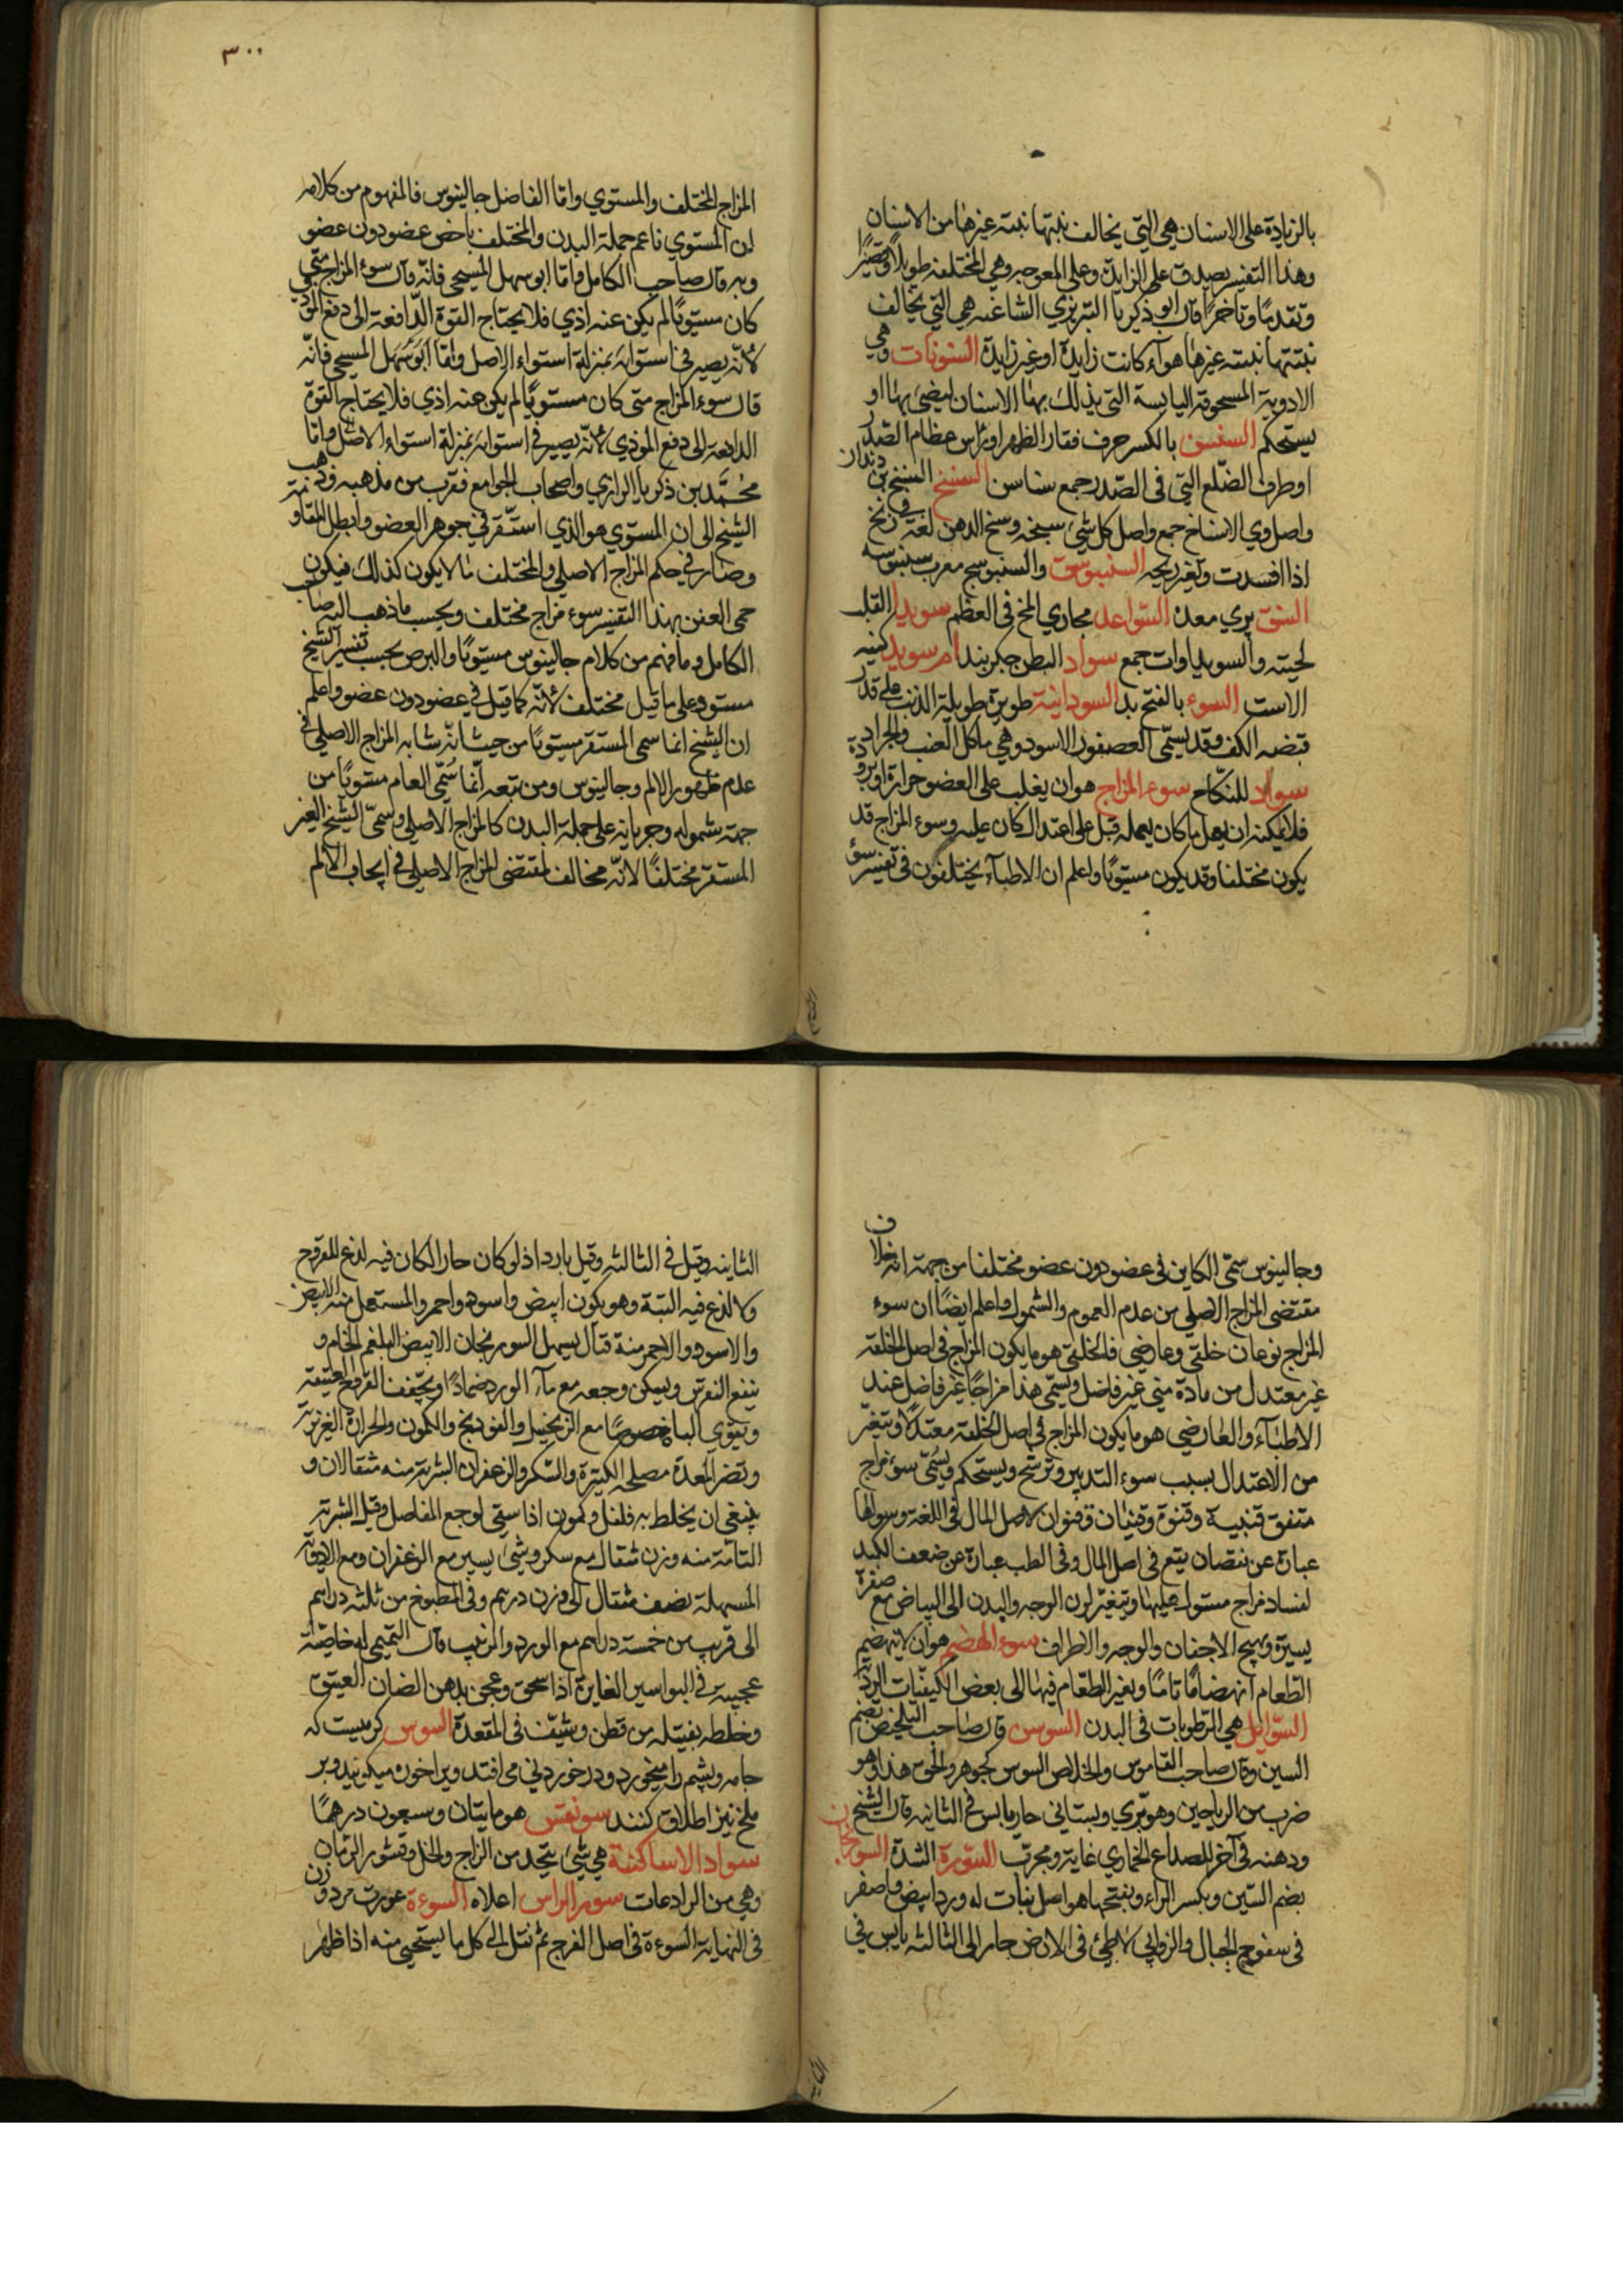 بالزيادة على الاسنان هي التي يخالف نبتها نبتة غيرها من الاسنان
وهذا التفسير يصدق على الزايدة وعلى المعوجه وهي المختلفة طويلا وقصيرا
وتقدما وتاخرا قال ابو ذكريا التبريزي الشاغيه هي التي يخالف
نبتتها نبتة غيرها سوآء كانت زايدة او غير زايدة السنونات وهي
الادوية المسحوقة اليابسة التي يذلك بها الاسنان ليضئ بها او
يستحكم السنسن بالكسر حرف فقار الظهر او راس عظام الصدر
او طرف الضلع التي في الصدر جمع سناسن السنخ السنخ بن دندان
واصل وي الاسناخ جمع واصل كل شئ سنخه وسنخ الدهن لغة في زنخ
اذا افسدت وتغير ريحه السنبوسق والسنبوسج معرب سنبوسه
السنق پري معده السواعد مجاري المخ في العظم سويدا القلب
لحيته والسويداوات جمع سواد البطن جكربند ام سويد كنيه
الاست السوء بالفتح بد السودانية طويرة طويلة الذنب على قدر
قبضه الكف وقد يسمى العصفور الاسود وهي ماكل العنب والجراد
سواد للنكاح سوء المزاج هو ان يغلب على العضو حرارة او برودة
فلا يمكنه ان يعمل ما كان يعمله قبل على اعتدال كان عليه وسوء المزاج قد
يكون مختلفا وقد يكون مستويا واعلم ان الاطبآء يختلفون في تفسير سوء
٣٠٠
المزاج المختلف والمستوي واما الفاضل جالينوس فالمفهوم من كلامه
ان المستوي ما عم جملة البدن والمختلف ما خص عضو دون عضو
وبه قال صاحب الكامل واما ابو سهل المسيحي فانه قال سوء المزاج متى
كان مستويا لم يكن عنه اذي فلا يحتاج القوة الدافعة الى دفع الموذي
لانه يصير في استوائه بمنزلة استواء الاصل واما ابو سهل المسيحي فانه
قال سوء المزاج متى كان مستويا لم يكن عنه اذي فلا يحتاج القوة
الدافعة الى دفع الموذي لانه يصير في استوائه بمنزلة استواء الاصل واما
محمد بن ذكريا الرازي واصحاب الجوامع فقرب من مذهبه وذهب
الشيخ الى ان المستوي هو الذي استقر في جوهر العضو وابطل المقاومة
وصار في حكم المزاج الاصلي والمختلف ما لا يكون كذلك فيكون
حمى العفن بهذا التفسير سوء مزاج مختلف وبحسب ما ذهب اليه صاحب
الكامل وما فهم من كلام جالينوس مستويا والبرص بحسب تفسير الشيخ
مستو وعلى ما قيل مختلف لانه كما قيل في عضو دون عضو واعلم
ان الشيخ انما سمى المستقر مستويا من حيث انه شابه المزاج الاصلي في
عدم ظهور الالم وجالينوس ومن تبعه انما سمى العام مستويا من
جهة شموله وجريانه على جملة البدن كالمزاج الاصلي وسمى الشيخ الغير
المستقر مختلفا لانه مخالف لمقتضى المزاج الاصلي في ايجاب الالم
وجالينوس سمى الكاين في عضو دون عضو مختلفا من جهة انه خلاف
مقتضى المزاج الاصلي من عدم العموم والشمول واعلم ايضا ان سوء
المزاج نوعان خلقي وعارضي فالخلقي هو ما يكون المزاج في اصل الخلقة
غير معتدل من مادة مني غير فاضل ويسمى هذا مزاجا غير فاضل عند
الاطبآء والعارضي هو ما يكون المزاج في اصل الخلقة معتدلا ويتغير
من الاعتدال بسبب سوء التدبير وترشح ويستحكم ويسمى سوء مزاج
متفق قنبية وقنوة وقنيان وقنوان لاصل المال في اللغة وسوالها
عبارة عن نقصان يقع في اصل المال وفي الطب عبارة عن ضعف الكبد
لفساد مزاج مستول عليها ويتغير لون الوجه والبدن الى البياض مع صفرة
يسيرة وتهيج الاجفان والوجه والاطراف سوء الهضم هو ان لا ينهضم
الطعام انهضاما تاما ويغير الطعام فيها الى بعض الكيفيات الردية
السوايل هي الرطوبات في البدن السوسن قال صاحب التلخيص بضم
السين وقال صاحب القاموس والخلاص السوسن كجوهر والحق هذا وهو
ضرب من الرياحين وهو بري وبستاني حار يابس في الثانية قال الشيخ
ودهنه في آخر للصداع الخماري غاية ومجرب السورة الشدة السورنجان
بضم السين وبكسر الراء وبفتحها هو اصل نبات له ورد ابيض واصفر
في سفوح الجبال والزوابي لاطئ في الارض حار الى الثالثه يابس في
الثانية وقيل في الثالثه وقيل بارد اذ لو كان حارا لكان فيه لذع للمقروح
ولا لذع فيه البتة وهو يكون ابيض واسود واحمر والمستعمل منه الابيض
والاسود والاحمر منة قتال يسهل السورنجان الابيض البلغم الخام و
ينفع النقرس ويسكن وجعه مع مآء الورد ضمادا ويجفف القروح العتيقة
ويقوي الباه خصوصا مع الزنجبيل والفودنج والكمون والحرارة الغريزية
وتضر المعدة مصلحه الكثيرة والسكر والزعفران الشربة منه مثقالان و
ينبغي ان يخلط به فلفل وكمون اذا سقي لوجع المفاصل وقيل الشربة
التامة منه وزن مثقال مع سكر وشئ يسير مع الزعفران ومع الادوية
المسهلة نصف مثقال الى وزن درهم وفي المطبوخ من ثلثه دراهم
الى قريب من خمسة دراهم مع الورد والزبيب قال التميمي له خاصية
عجيبة في البواسير الغايرة اذا سحق وعجن بدهن الضان العتيق
وخلطه بفتيله من قطن وشيف في المقعدة السوس كرميست كه
جامه وپشم را ميخورد ودر خوردني مي افتد ويرا خون ميكويند وبر
ملخ نيز اطلاق كنند سونقس هو مايتان وسبعون درهما
سواد الاساكفة هي شئ يتخذ من الزاج والخل وقشور الرمان
وهي من الرادعات سور الراس اعلاه السوءة عورت مرد وزن
في النهاية السوءة في اصل الفرج ثم نقل الى كل ما يستحيي منه اذا ظهر